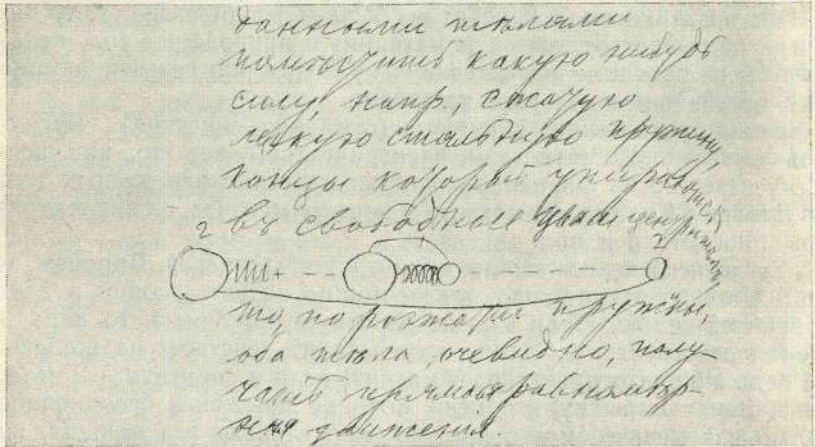 данными тѣлами
помѣстить какую нибудь
силу, напр., сжатую
легкую стальную пружину,
концы которой упираются
въ свободные центры тѣлъ,
2
2
то, по розжатіи пружины,
оба тѣла, очевидно, полу-
чатъ прямыя равномѣр-
ныя движенія.